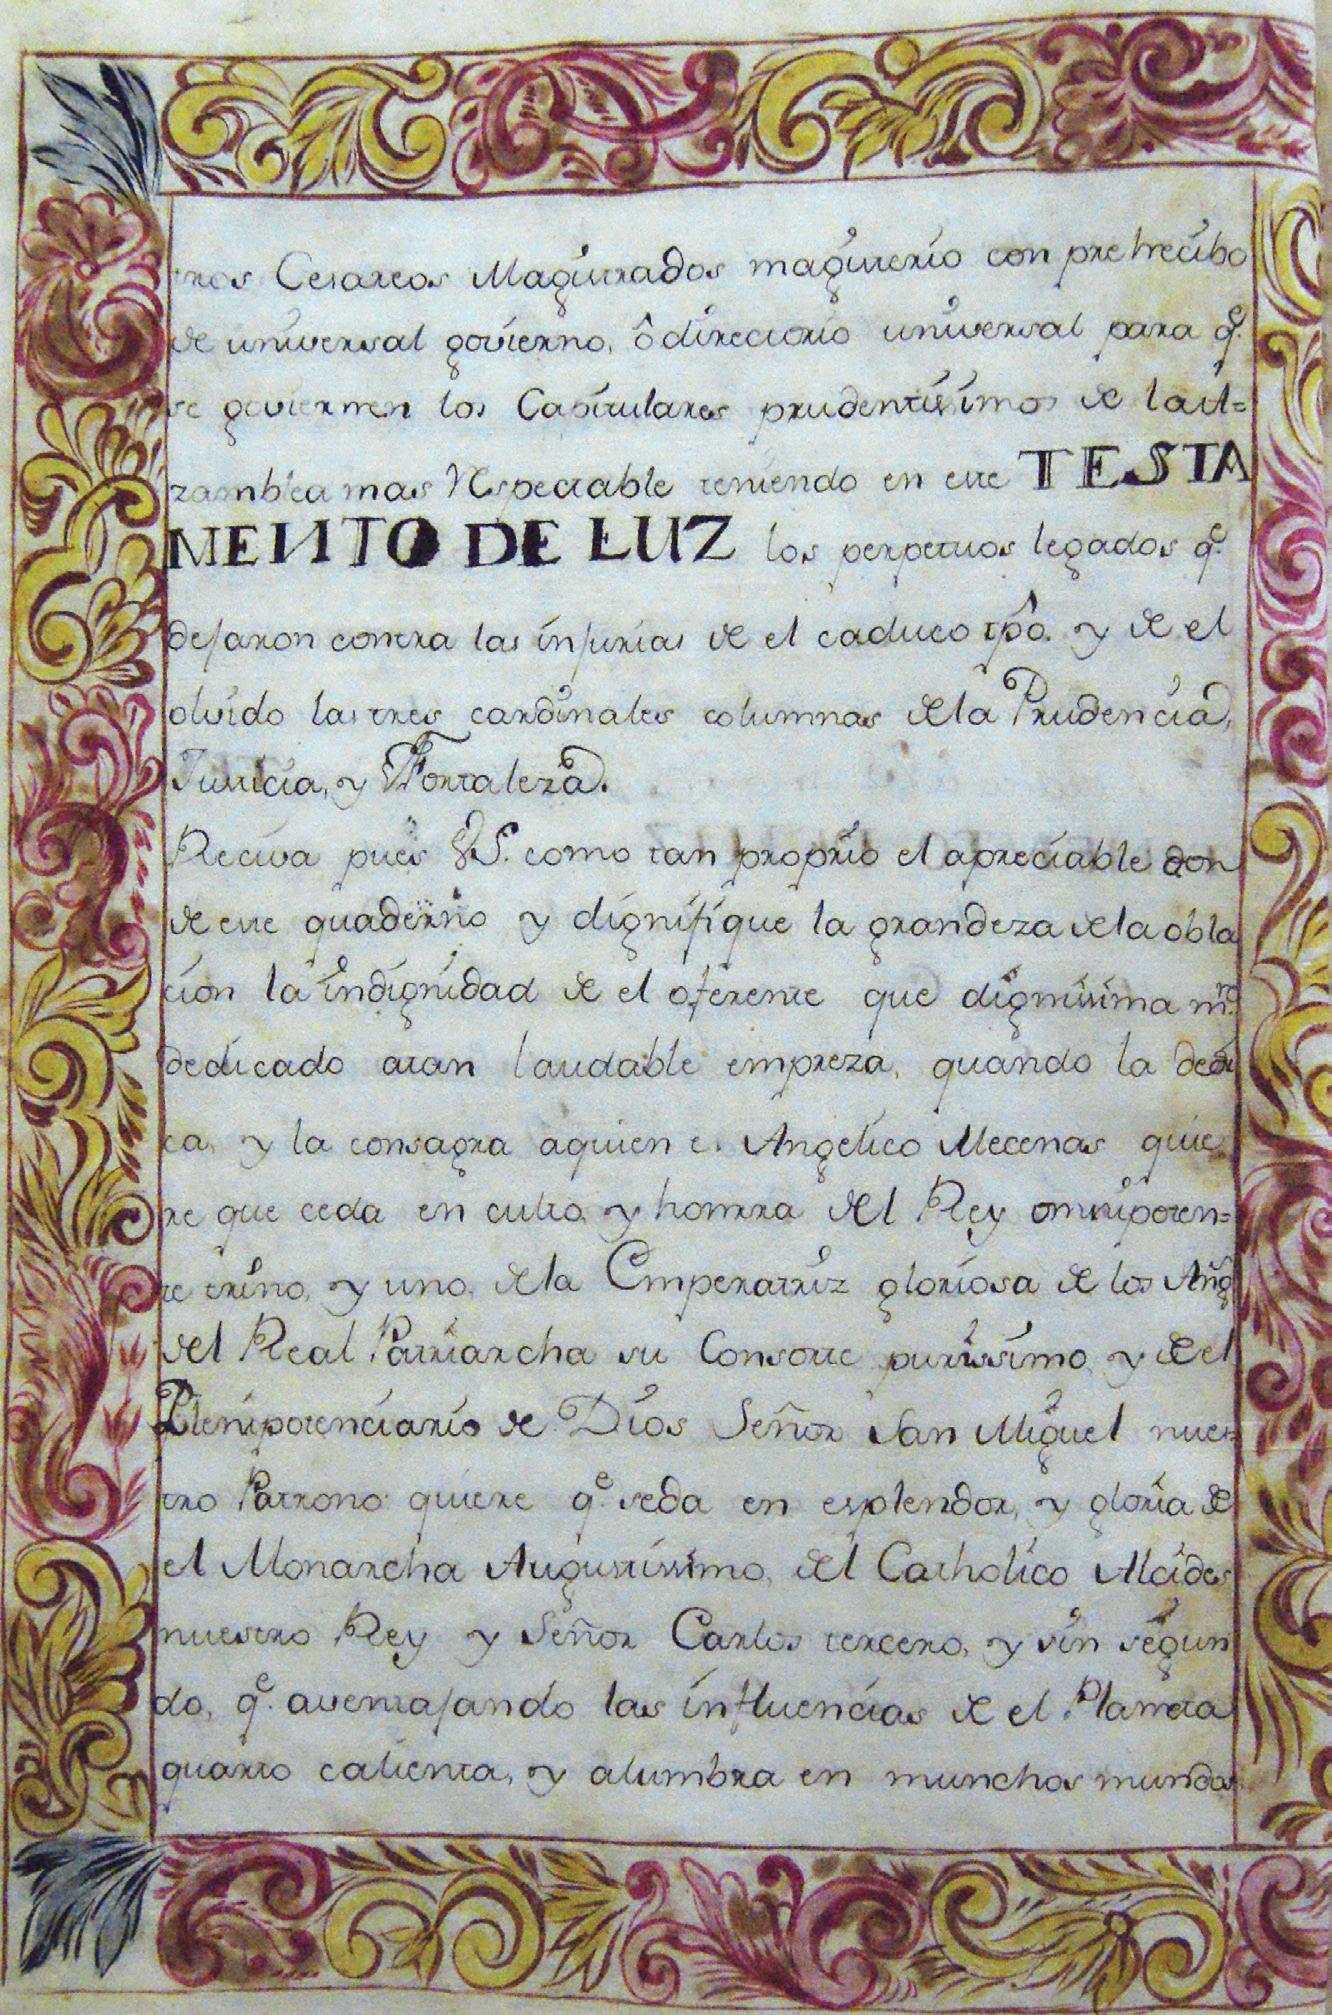 tros Cesareos Magistrados magisterio con pretrecibo
de universal govierno, ô directorio universal para q.e
se goviernen los Capitulares prudentissimos de la il=
zamblea mas Respectable teniendo en este TESTA
MENTO DE LUZ los perpetuos legados q.e
dejaron contra las injurias de el caduco tpô. y de el
olvido las tres cardinales columnas de la Prudencia,
Justicia, y Fortaleza.
Reciva pues VS. como tan proprio el apreciable don
de este quaderno y dignifique la grandeza de la obla
cion la indignidad de el oferente que dignissima m.te
dedicado atan laudable empreza, quando la dedi
ca, y la consagra aquien e. Angelico Mecenas quie
re que ceda en culto, y honrra del Rey omnipoten=
te trino, y uno, de la Emperatriz gloriosa de los Ang
del Real Patriarcha su Consorte purissimo, y de el
Plenipotenciario de Dios Señor San Miguel nues
tro Patrono quiere q.e seda en esplendor, y gloria de
el Monarcha Augustissimo, del Catholico Alcides
nuestro Rey y Señor Carlos tercero, y sin segun
do, q.e aventajando las influencias de el Planeta
quarto calienta, y alumbra en munchos mundos